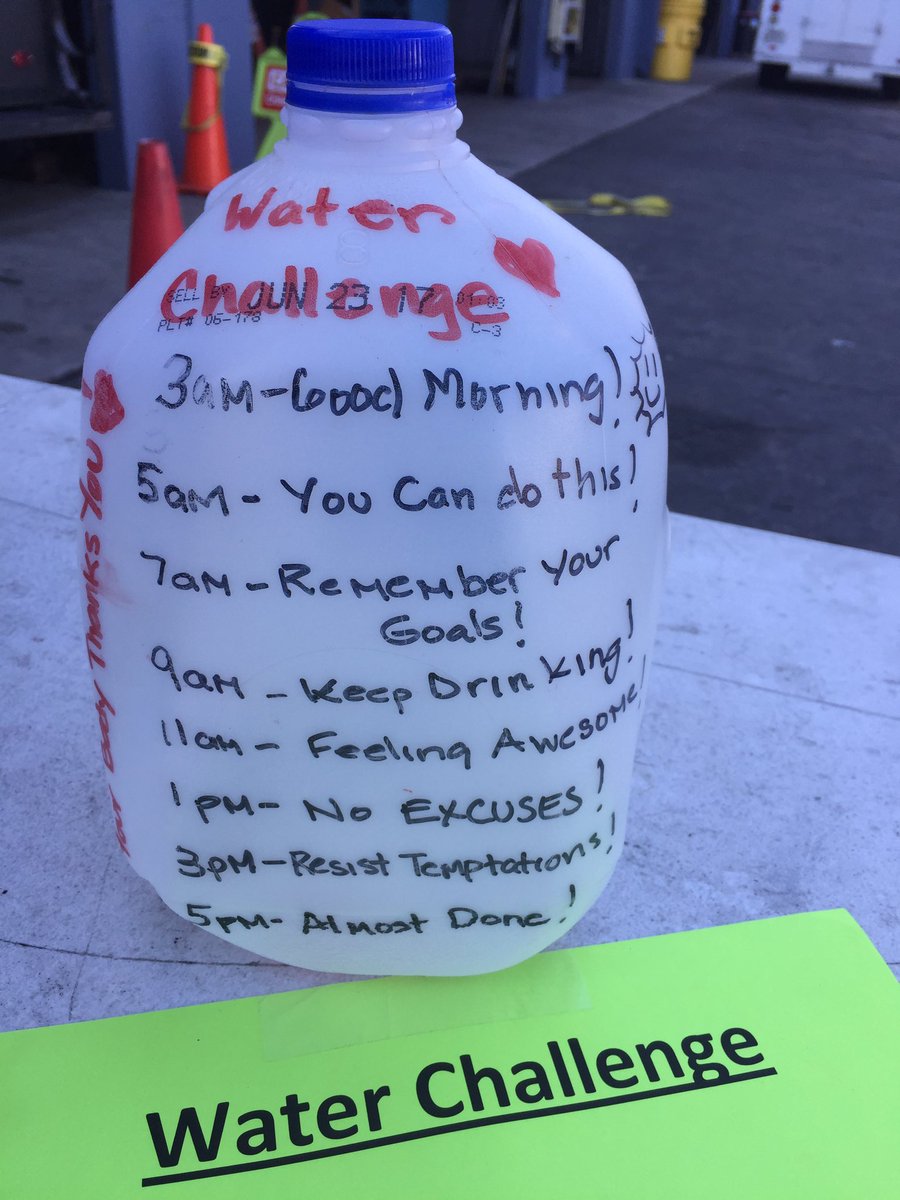 Water
Challenge
SELL BY JUN 23 17 01:03
PLT# 06-178 C-3
3am-Good Morning!
5am - You Can do this!
7am - Remember Your
Goals!
9am - Keep Drinking!
11am - Feeling Awesome!
1pm - No EXCUSES!
3pm - Resist Temptations!
5pm - Almost Done!
Your Body Thanks You
Water Challenge